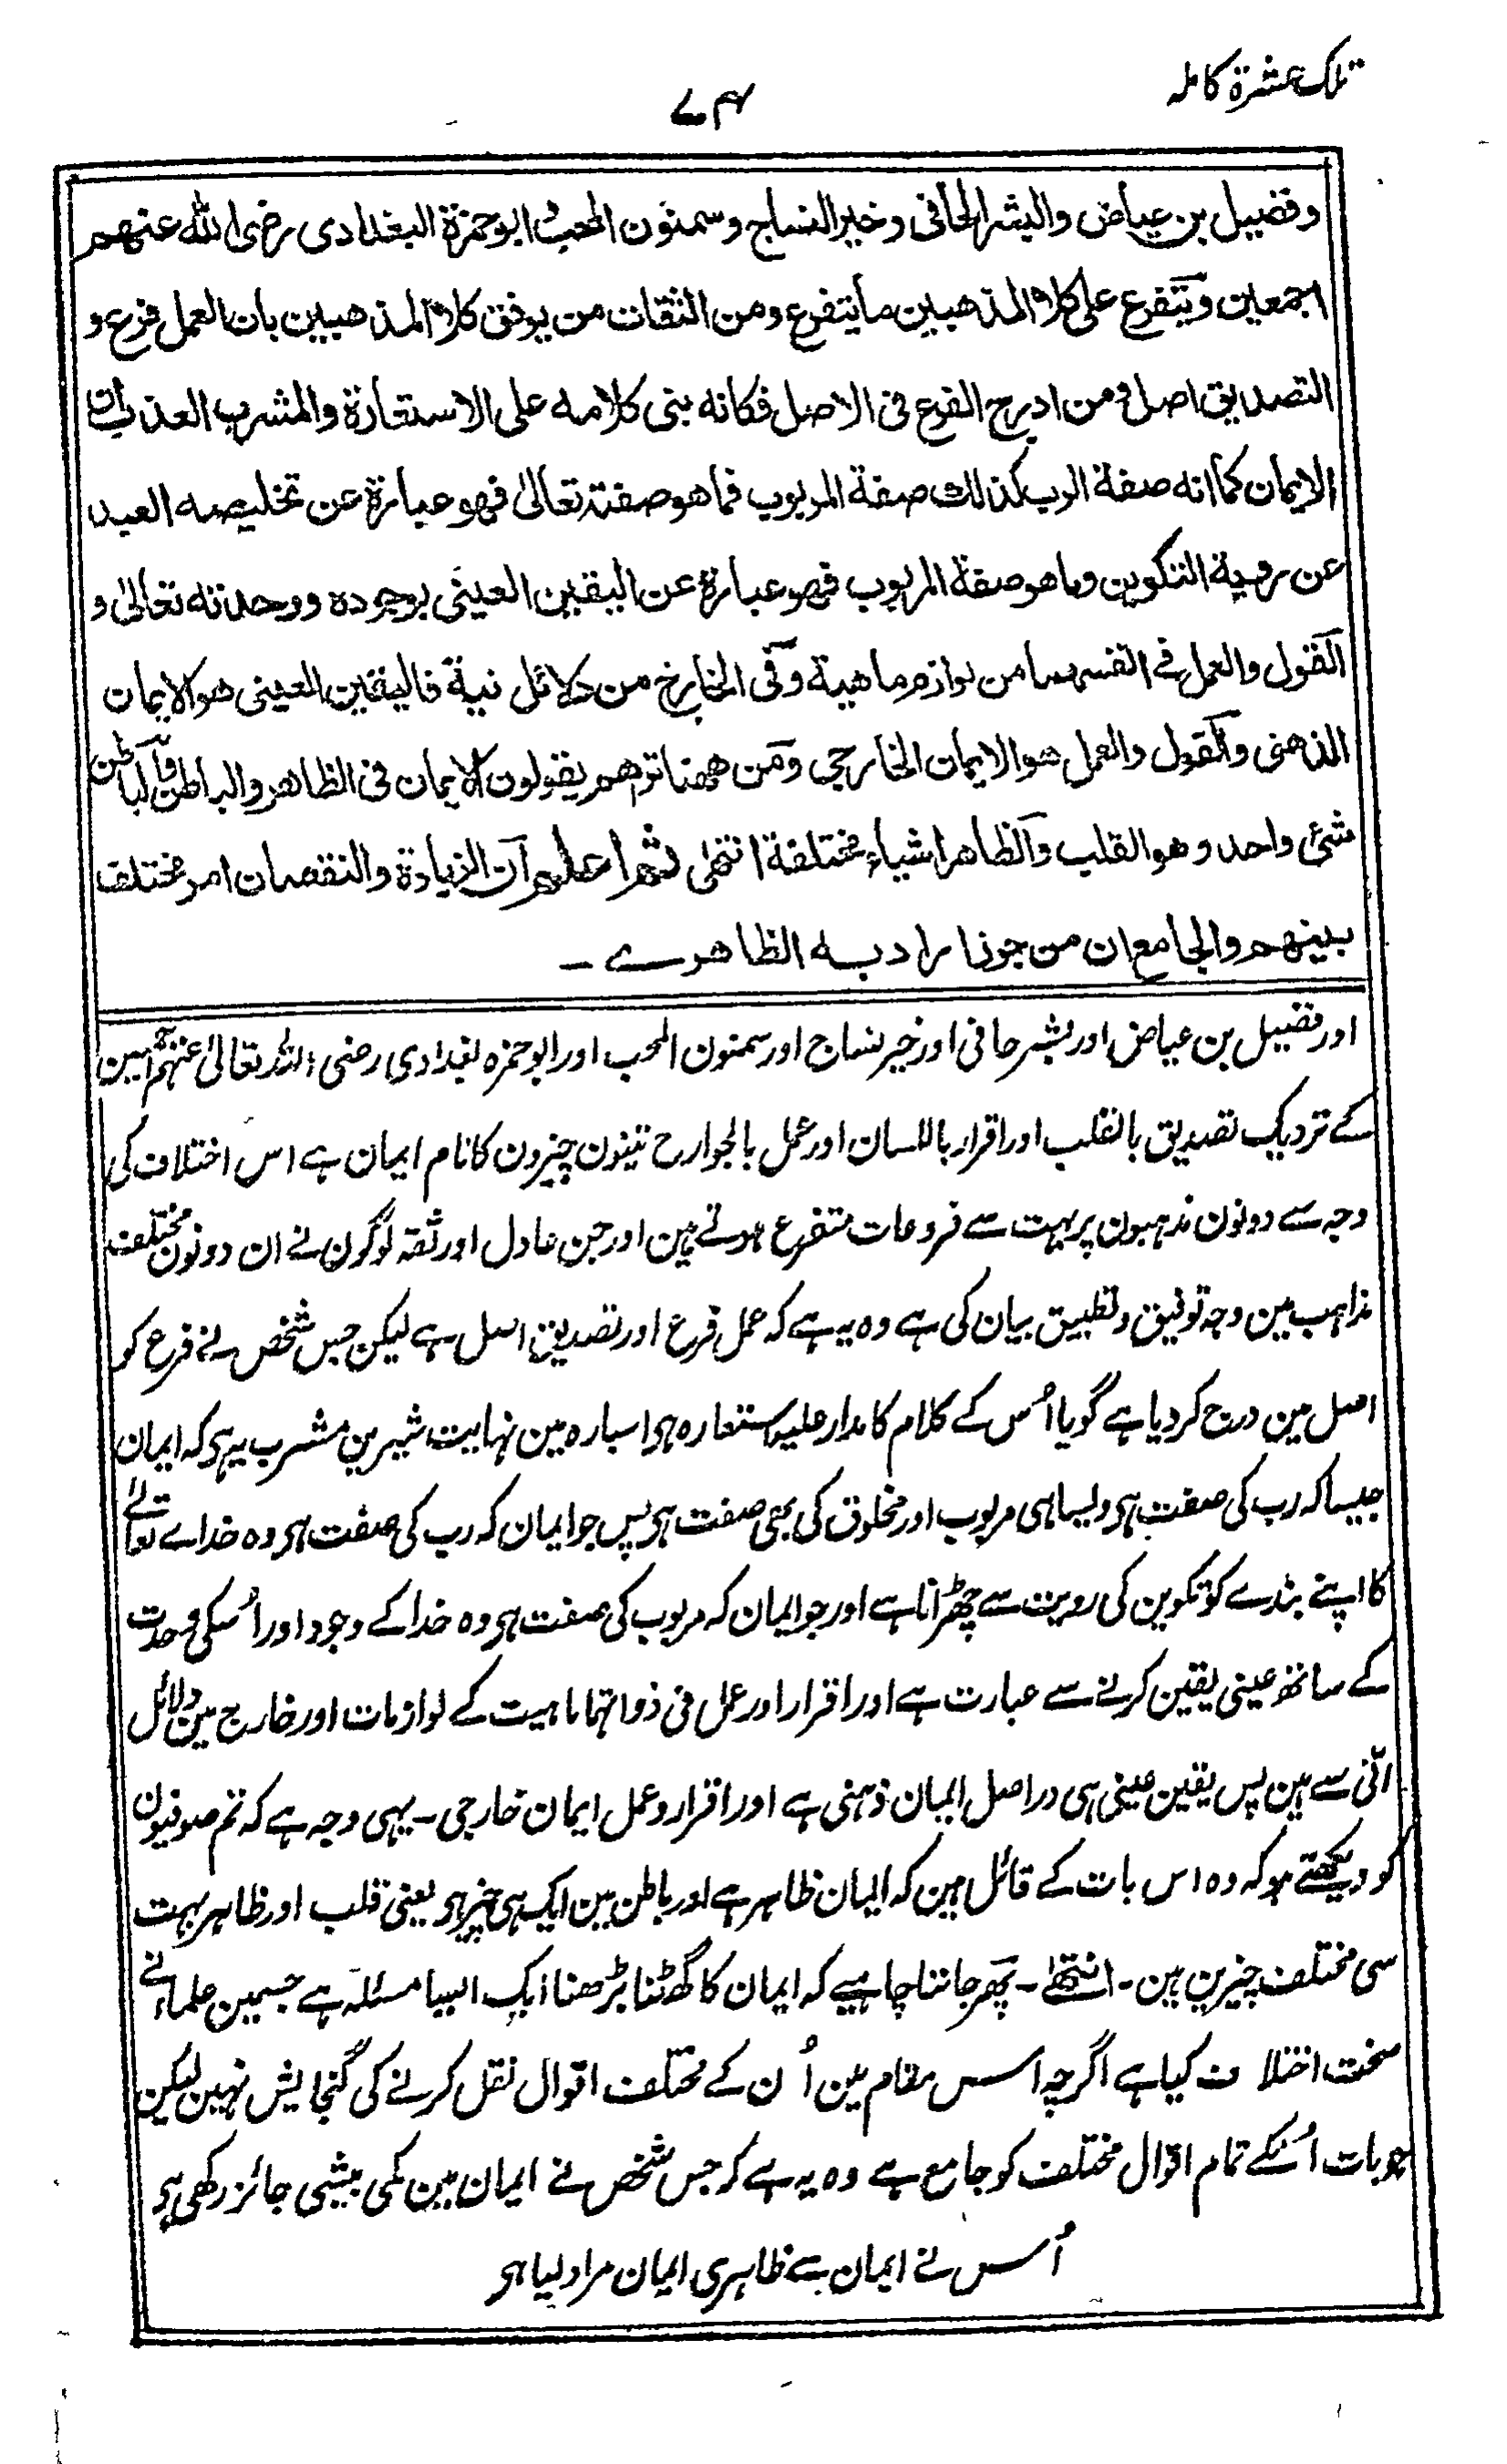 تلک عشرة کامله
۷۴
وفضیل بن عیاض والبشر الحافی وخیر النساج وسمنون المحب ابوحمزة البغدادی رضی الله عنهم
اجمعین ویتفرع علی کلا المذهبین ما یتفرع ومن الثقات من یوفق کلا المذهبین بان العمل فرع و
التصدیق اصل ومن ادرج الفرع فی الاصل فکانه بنی کلامه علی الاستعارة والمشرب العذب ان
الایمان کما انه صفة الرب کذلک صفة المربوب فما هو صفته تعالیٰ فهو عبارة عن تخلیصه العبد
عن رویة التکوین وما هو صفة المربوب فهو عبارة عن الیقین العینی بوجوده ووحدته تعالیٰ و
القول والعمل فی انفسهما من لوازم ماهیة وفی الخارج من دلائل نیة فالیقین العینی هو الایمان
الذهنی والقول والعمل هو الایمان الخارجی ومن ههنا تراهم یقولون الایمان فی الظاهر والباطن والباطن
شئ واحد وهو القلب والظاهر اشیاء مختلفة انتهٰی ثم اعلم ان الزیادة والنقصان امر مختلف
بینهم والجامع ان من جوزنا راد به الظاهرے ۔
اور فضیل بن عیاض اور بشر حافی اور خیر نساج اور سمنون المحب اور ابوحمزہ بغدادی رضی اللہ تعالیٰ عنہم اجمعین
کے نزدیک تصدیق بالقلب اور اقرار باللسان اور عمل بالجوارح تینون چیزون کا نام ایمان ہے اس اختلاف کی
وجہ سے دونون مذہبون پر بہت سے فروعات متفرع ہوتے ہین اور جن عادل اور ثقہ لوگون نے ان دونون مختلف
مذاہب مین وجہ توفیق و تطبیق بیان کی ہے وہ یہ ہے کہ عمل فرع اور تصدیق اصل ہے لیکن جس شخص نے فرع کو
اصل مین درج کر دیا ہے گویا اُس کے کلام کا مدار علیہ استعارہ ہی اسبارہ مین نہایت شیرین مشرب یہ ہی کہ ایمان
جیسا کہ رب کی صفت ہی ویسا ہی مربوب اور مخلوق کی بھی صفت ہی پس جو ایمان کہ رب کی صفت ہی وہ خداے تعالےٰ
کا اپنے بندے کو تکوین کی رویت سے چھڑانا ہے اور جو ایمان کہ مربوب کی صفت ہی وہ خدا کے وجود اور اُسکی وحدت
کے ساتھ عینی یقین کرنے سے عبارت ہے اور اقرار اور عمل فی ذواتہما ماہیت کے لوازمات اور خارج مین دلائل
انّی سے ہین پس یقین عینی ہی دراصل ایمان ذہنی ہے اور اقرار و عمل ایمان خارجی ۔ یہی وجہ ہے کہ تم صوفیون
کو دیکھتے ہو کہ وہ اس بات کے قائل ہین کہ ایمان ظاہر ہے اور باطن مین ایک ہی چیز ہی یعنی قلب اور ظاہر بہت
سی مختلف چیزین ہین ۔ انتہٰے ۔ پھر جاننا چاہیے کہ ایمان کا گھٹنا بڑھنا ایک ایسا مسئلہ ہے جسمین علماء نے
سخت اختلاف کیا ہے اگرچہ اس مقام مین اُن کے مختلف اقوال نقل کرنے کی گنجایش نہین لیکن
جو بات اُنکے تمام اقوال مختلف کو جامع ہے وہ یہ ہے کہ جس شخص نے ایمان مین کمی بیشی جائز رکھی ہی
اُس نے ایمان سے ظاہری ایمان مراد لیا ہی